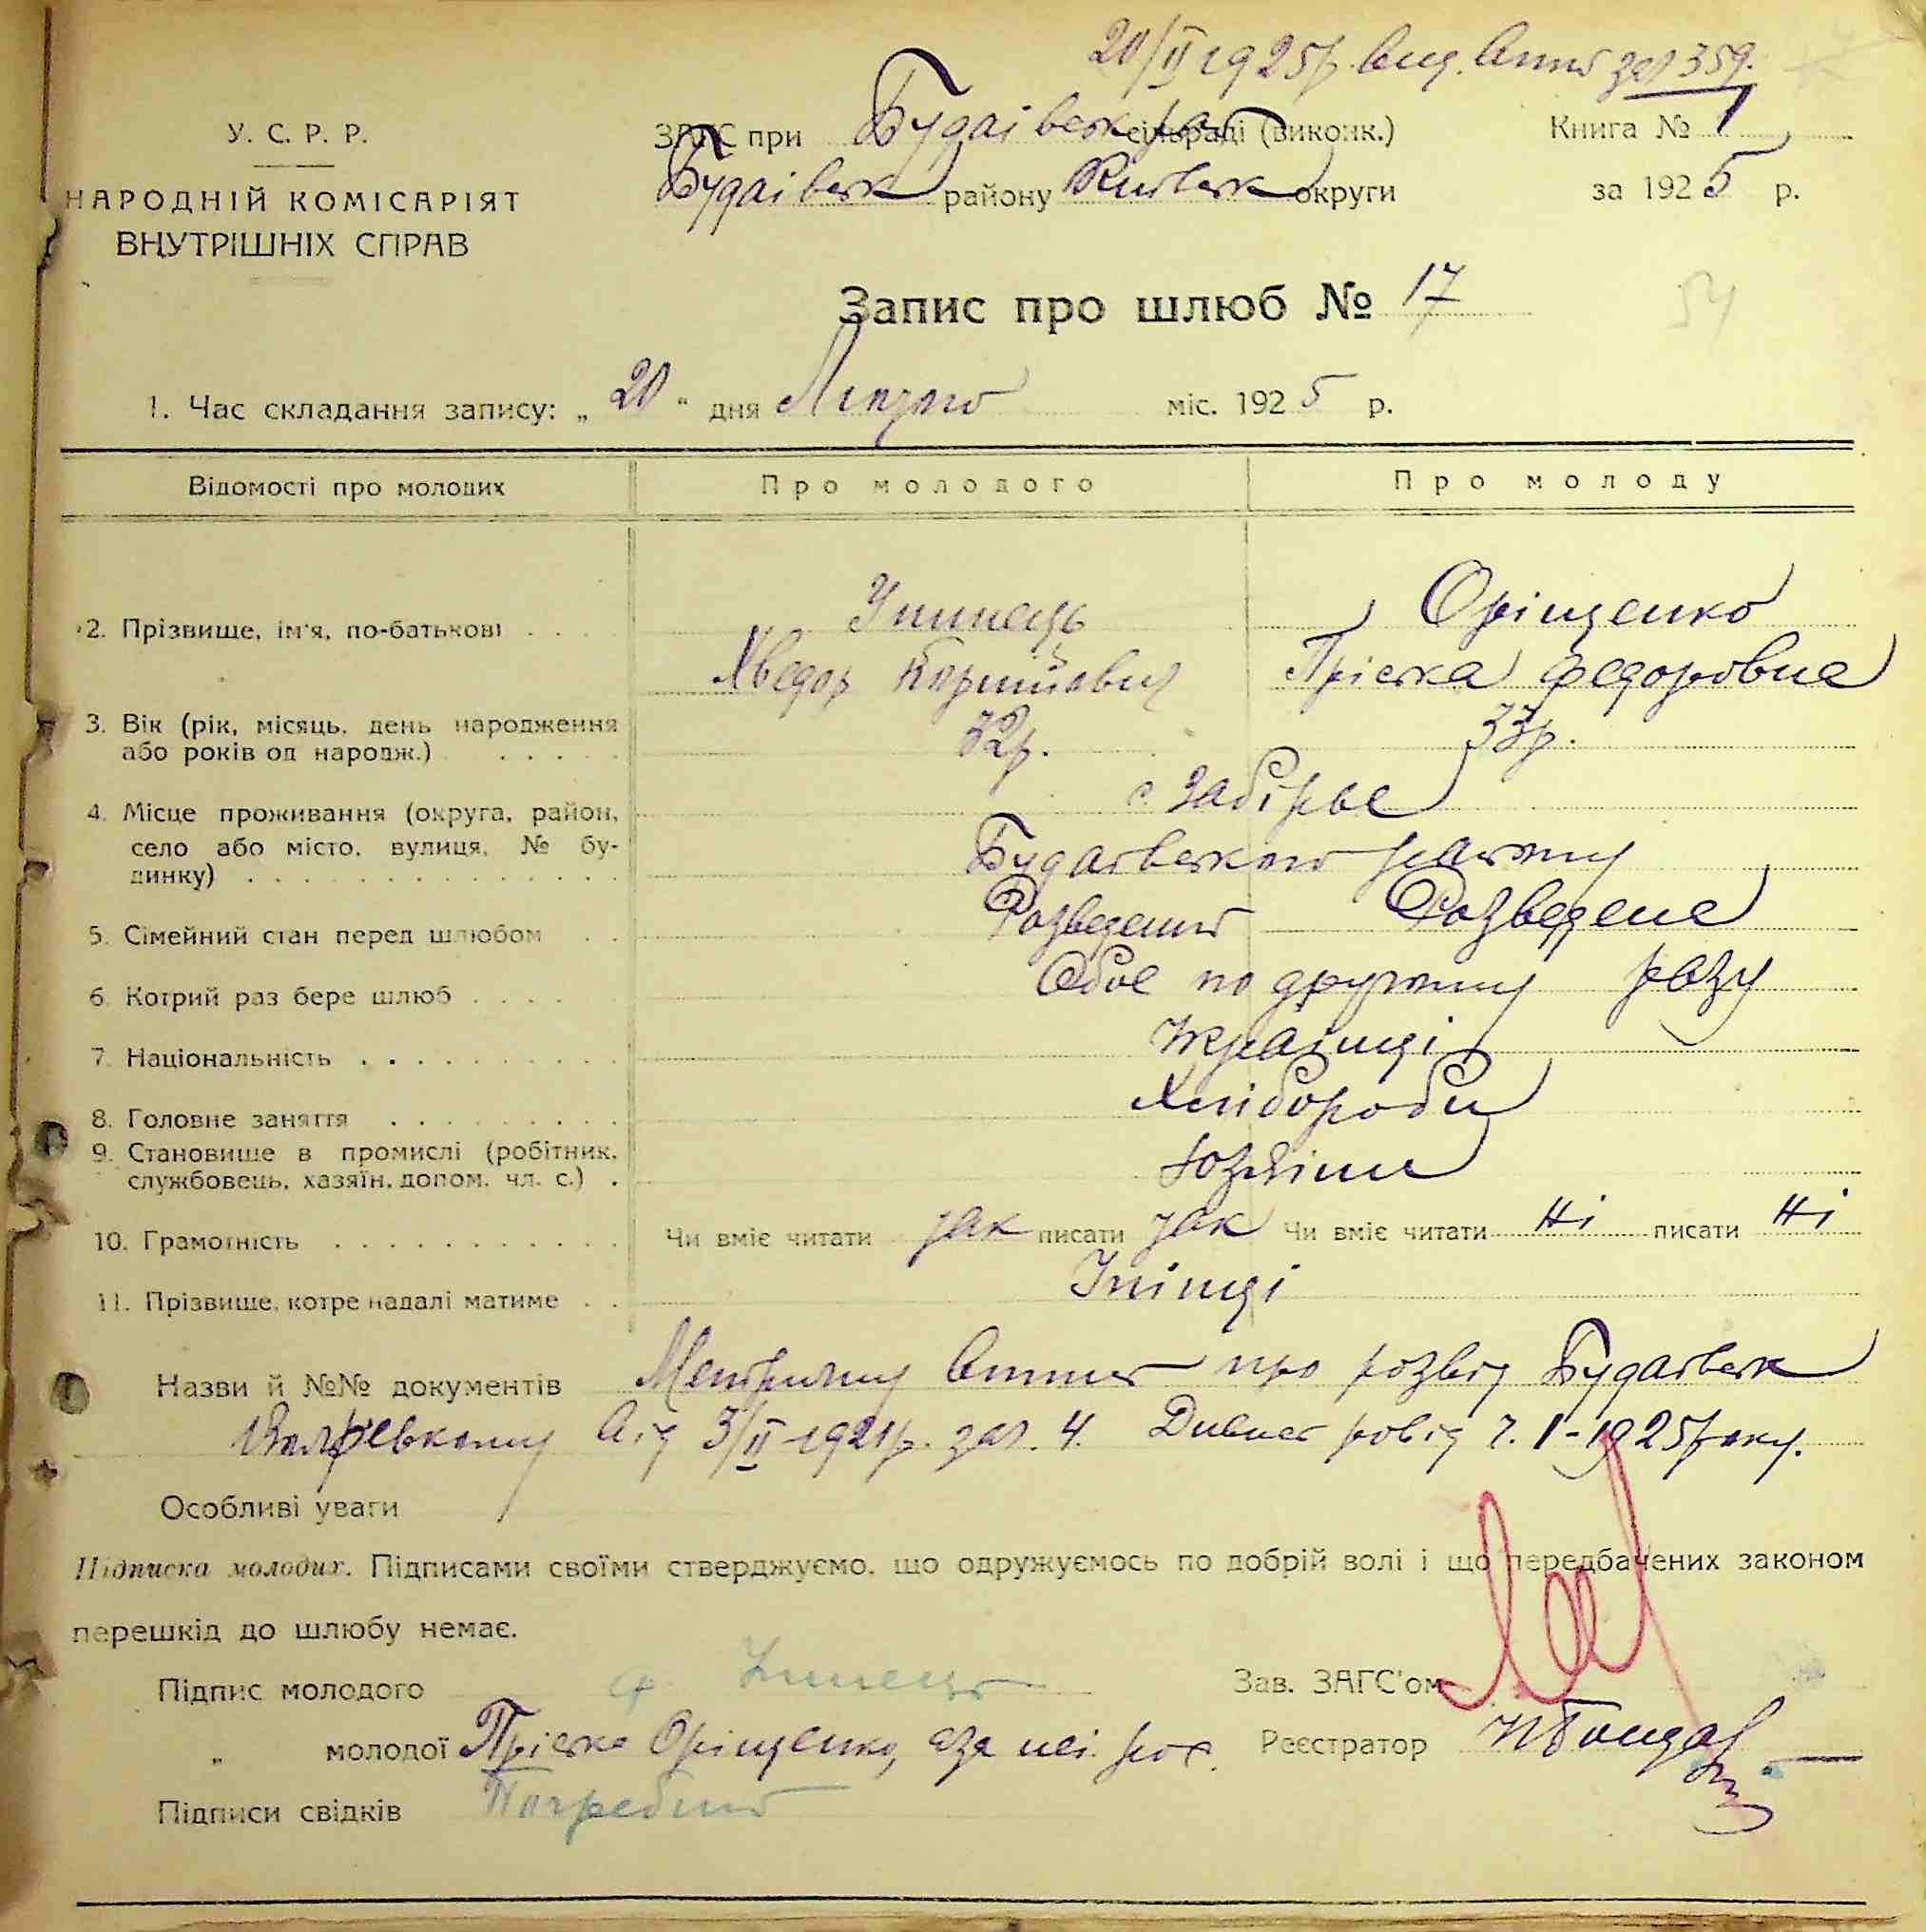 20/II 1925р. вид. Витяг за № 359.
У. С. Р. Р.
ЗАГС при Будаівск сільраді (виконк.) Книга № 1
НАРОДНІЙ КОМІСАРІЯТ
Будаівськ району Київськ округи за 1925 р.
ВНУТРІШНІХ СПРАВ
Запис про шлюб № 17
54
1. Час складання запису: „ 20 " дня Лютого міс. 1925 р.
Відомості про молодих Про молодого Про молоду
2. Прізвище, ім'я, по-батькові
Оріщенко
Хведор Пріська Федоровна
3. Вік (рік, місяць, день народження або років од народж.) 32р. 33р.
4. Місце проживання (округа, район, село або місто, вулиця, № будинку)
с. Забірье
Будаівського району
5. Сімейний стан перед шлюбом Розведений Розведена
6. Котрий раз бере шлюб Обое по другому разу
7. Національність Украінці
8. Головне заняття Хлібороби
9. Становище в промислі (робітник, службовець, хазяїн, допом. чл. с.)
10. Грамотність Чи вміє читати так писати так Чи вміє читати ні писати ні
11. Прізвище, котре надалі матиме
Назви й №№ документів про розвід Будаівськ
від 3/II 1921р. за № 4. розвід 1925 року.
Особливі уваги
Підписка молодих. Підписами своїми стверджуємо, що одружуємось по добрій волі і що передбачених законом
перешкід до шлюбу немає.
Підпис молодого Зав. ЗАГС'ом
„ молодої Пріська Оріщенко, а за неі Реєстратор
Підписи свідків